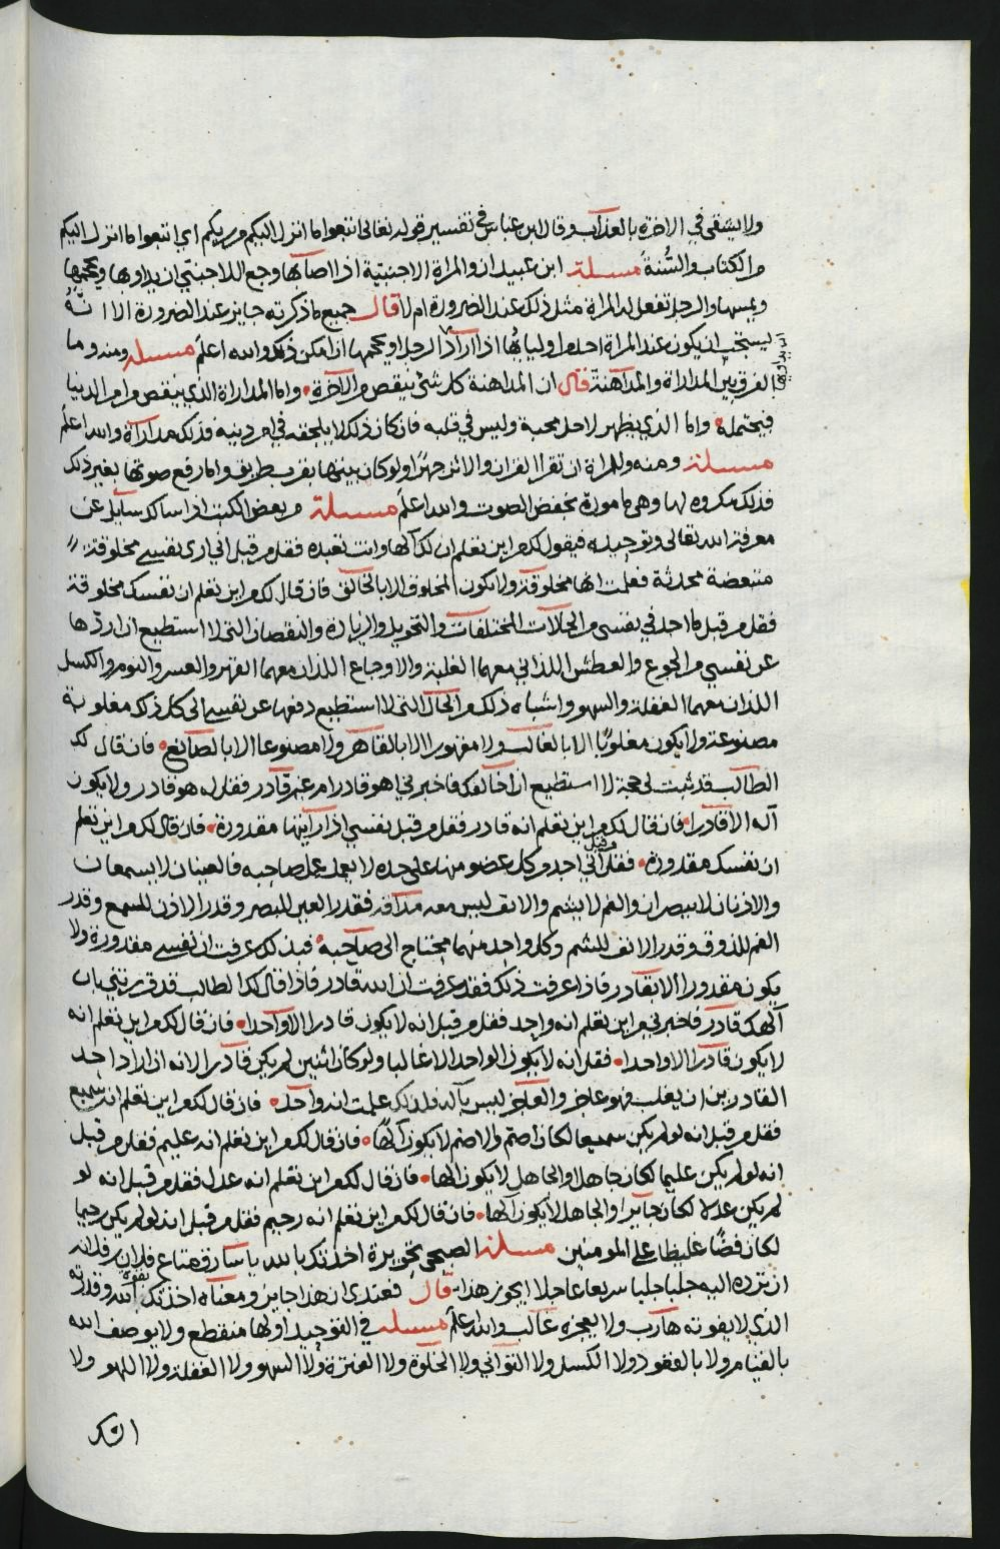 ولا يشقى في الاخرة بالعذاب وقال ابن عباس في تفسير قوله تعالى اتبعوا ما انزل اليكم من ربكم اي اتبعوا ما انزل اليكم
من الكتاب والسُّنة مسئلة ابن عبيدان والمراة الاجنبية اذا اصابها وجع اللاجنبي ان يداويها ويحجمها
ويمسها والرجل تفعل له المراة مثل ذلك عند الضرورة ام لا قال جميع ما ذكرته جايز عند الضرورة الا انّهُ
يستحب ان يكون عند المراة احد من اوليائها اذا اراد الرجل ان يداويها او يحجمها ان امكن ذلك والله اعلم مسئلة ومنه وما
الفرق بين المداراة والمداهنة قال ان المداهنة كل شيء ينقص من الآخرة واما المداراة الذي ينقص من امر الدنيا
فيحتمله واما الذي يظهر لاحد محبة وليس في قلبه فان كان ذلك لا يلحقه في امر دينه فذلك مداراة والله اعلم
مسئلة ومنه وللمراة ان تقرا القران والاثر جهرًا ولو كان بيتها بقرب طريق واما رفع صوتها بغير ذلك
فذلك مكروه لها وهي مامورة بخفض الصوت والله اعلم مسئلة من بعض الكتب اذا سالك سايل عن
معرفة الله تعالى وتوحيده فيقول لك من اين تعلم ان لك آلها وانت تعبده فقل من قبل اني ارى نفسي مخلوقة
متبعضة محدثة فعلمت انها مخلوقة ولا يكون المخلوق الا بالخالق فان قال لك من اين تعلم ان نفسك مخلوقة
فقل من قبل ما اجد في نفسي من الحالات المختلفات والتحويل والزيادة والنقصان التي لا استطيع ان اردّها
عن نفسي من الجوع والعطش اللذاني معهما الغلبة والاوجاع اللذان معهما القهر والعسر والنوم والكسل
اللذان معهما الغفلة والسهو واشباه ذلك من الحال التي لا استطيع دفعها عن نفسي الى كل ذلك مغلوبة
مصنوعة ولا يكون مغلوبًا الا بالغالب ولا مقهورا الا بالقاهر ولا مصنوعا الا بالصانع فان قال لك
الطالب قد ثبت لي حجة لا استطيع ان اخالفك فاخبرني اهو قادر ام غير قادر فقل له هو قادر ولا يكون
آله الا قادرا فان قال لك من اين تعلم انه قادر فقل من قبل نفسي اذا رايتها مقدورة فان قال لك من اين تعلم
ان نفسك مقدورة فقل من قبل اني اجد كل عضو منها على حده لا يعمل عمل صاحبه فالعينان لا يسمعان
والاذنان لا يبصران والفم لا يشم والانف ليس معه مذاقة فقدر العين للبصر وقدر الاذن للسمع وقدر
الفم للذوق وقدر الانف للشم وكل واحد منهما محتاج الى صاحبه فبذلك عرفت ان نفسي مقدورة ولا
يكون مقدورا الا بقادر فاذا عرفت ذلك فقد عرفت ان الله قادر فاذا قال لك الطالب قد قررتني بان
آلهك قادر فاخبرني من اين تعلم انه واحد فقل من قبل انه لا يكون قادرا الا واحدا فان قال لك من اين تعلم انه
لا يكون قادرا الا واحدا فقل انه لا يكون الواحد الا غالبا ولو كان اثنين لم يكن قادرا لانه اذا اراد احد
القادرين ان يغلب فهو عاجز والعاجز ليس بآله فلذلك علمت انه واحد فان قال لك من اين تعلم انه سميع
فقل من قبل انه لو لم يكن سميعا لكان اصم والاصم لا يكون آلها فان قال لك من اين تعلم انه عليم فقل من قبل
انه لو لم يكن عليما لكان جاهلا والجاهل لا يكون الها فان قال لك من اين تعلم انه عدل فقل من قبل انه لو
لم يكن عدلا لكان جايرا والجاهل لا يكون آلها فان قال لك من اين تعلم انه رحيم فقل من قبل انه لو لم يكن رحيما
لكان فضًا غليظا على المومنين مسئلة الصبحي تحويرة اخذتك بالله يا سارق متاع فلان بن فلانه
ان ترده اليه جلبا جلبا سريعا عاجلا ايجوز هذا قال فعندي ان هذا جايز ومعناه اخذتك بقوة الله وقدرته
الذي لا يفوته هارب ولا يعجزه غالب والله اعلم مسئلة في التوحيد اولها منقطع ولا يوصف الله
بالقيام ولا بالقعود ولا الكسل ولا التواني ولا الخلوة ولا الفترة ولا السهو ولا الغفلة ولا اللهو ولا
الشك